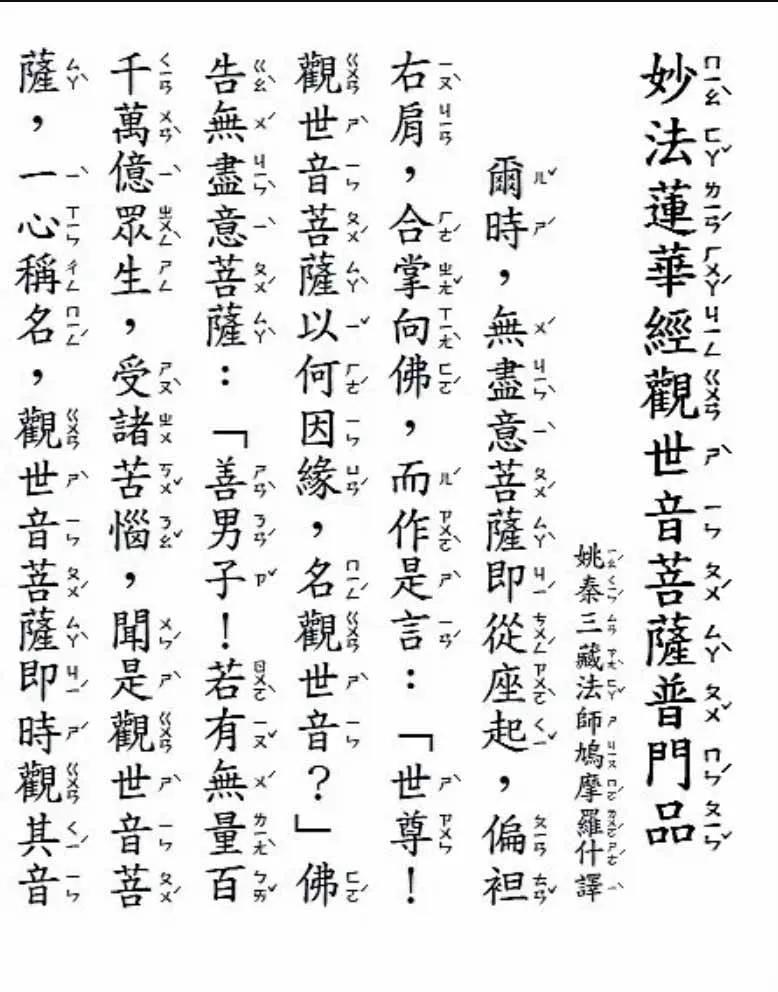 妙法蓮華經觀世音菩薩普門品
姚秦三藏法師鳩摩羅什譯
爾時，無盡意菩薩即從座起，偏袒
右肩，合掌向佛，而作是言：「世尊！
觀世音菩薩以何因緣，名觀世音？」佛
告無盡意菩薩：「善男子！若有無量百
千萬億眾生，受諸苦惱，聞是觀世音菩
薩，一心稱名，觀世音菩薩即時觀其音